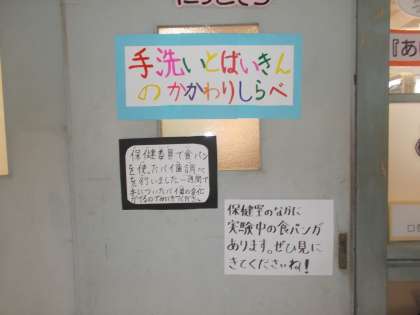 手洗いとばいきん
のかかわりしらべ
保健委員で食パン
を使ったバイ菌調べ
を行いました。一週間で
手についたバイ菌の変化
保健室のなかに
実験中の食パンが
あります。ぜひ見に
きてくださいね!
『あ